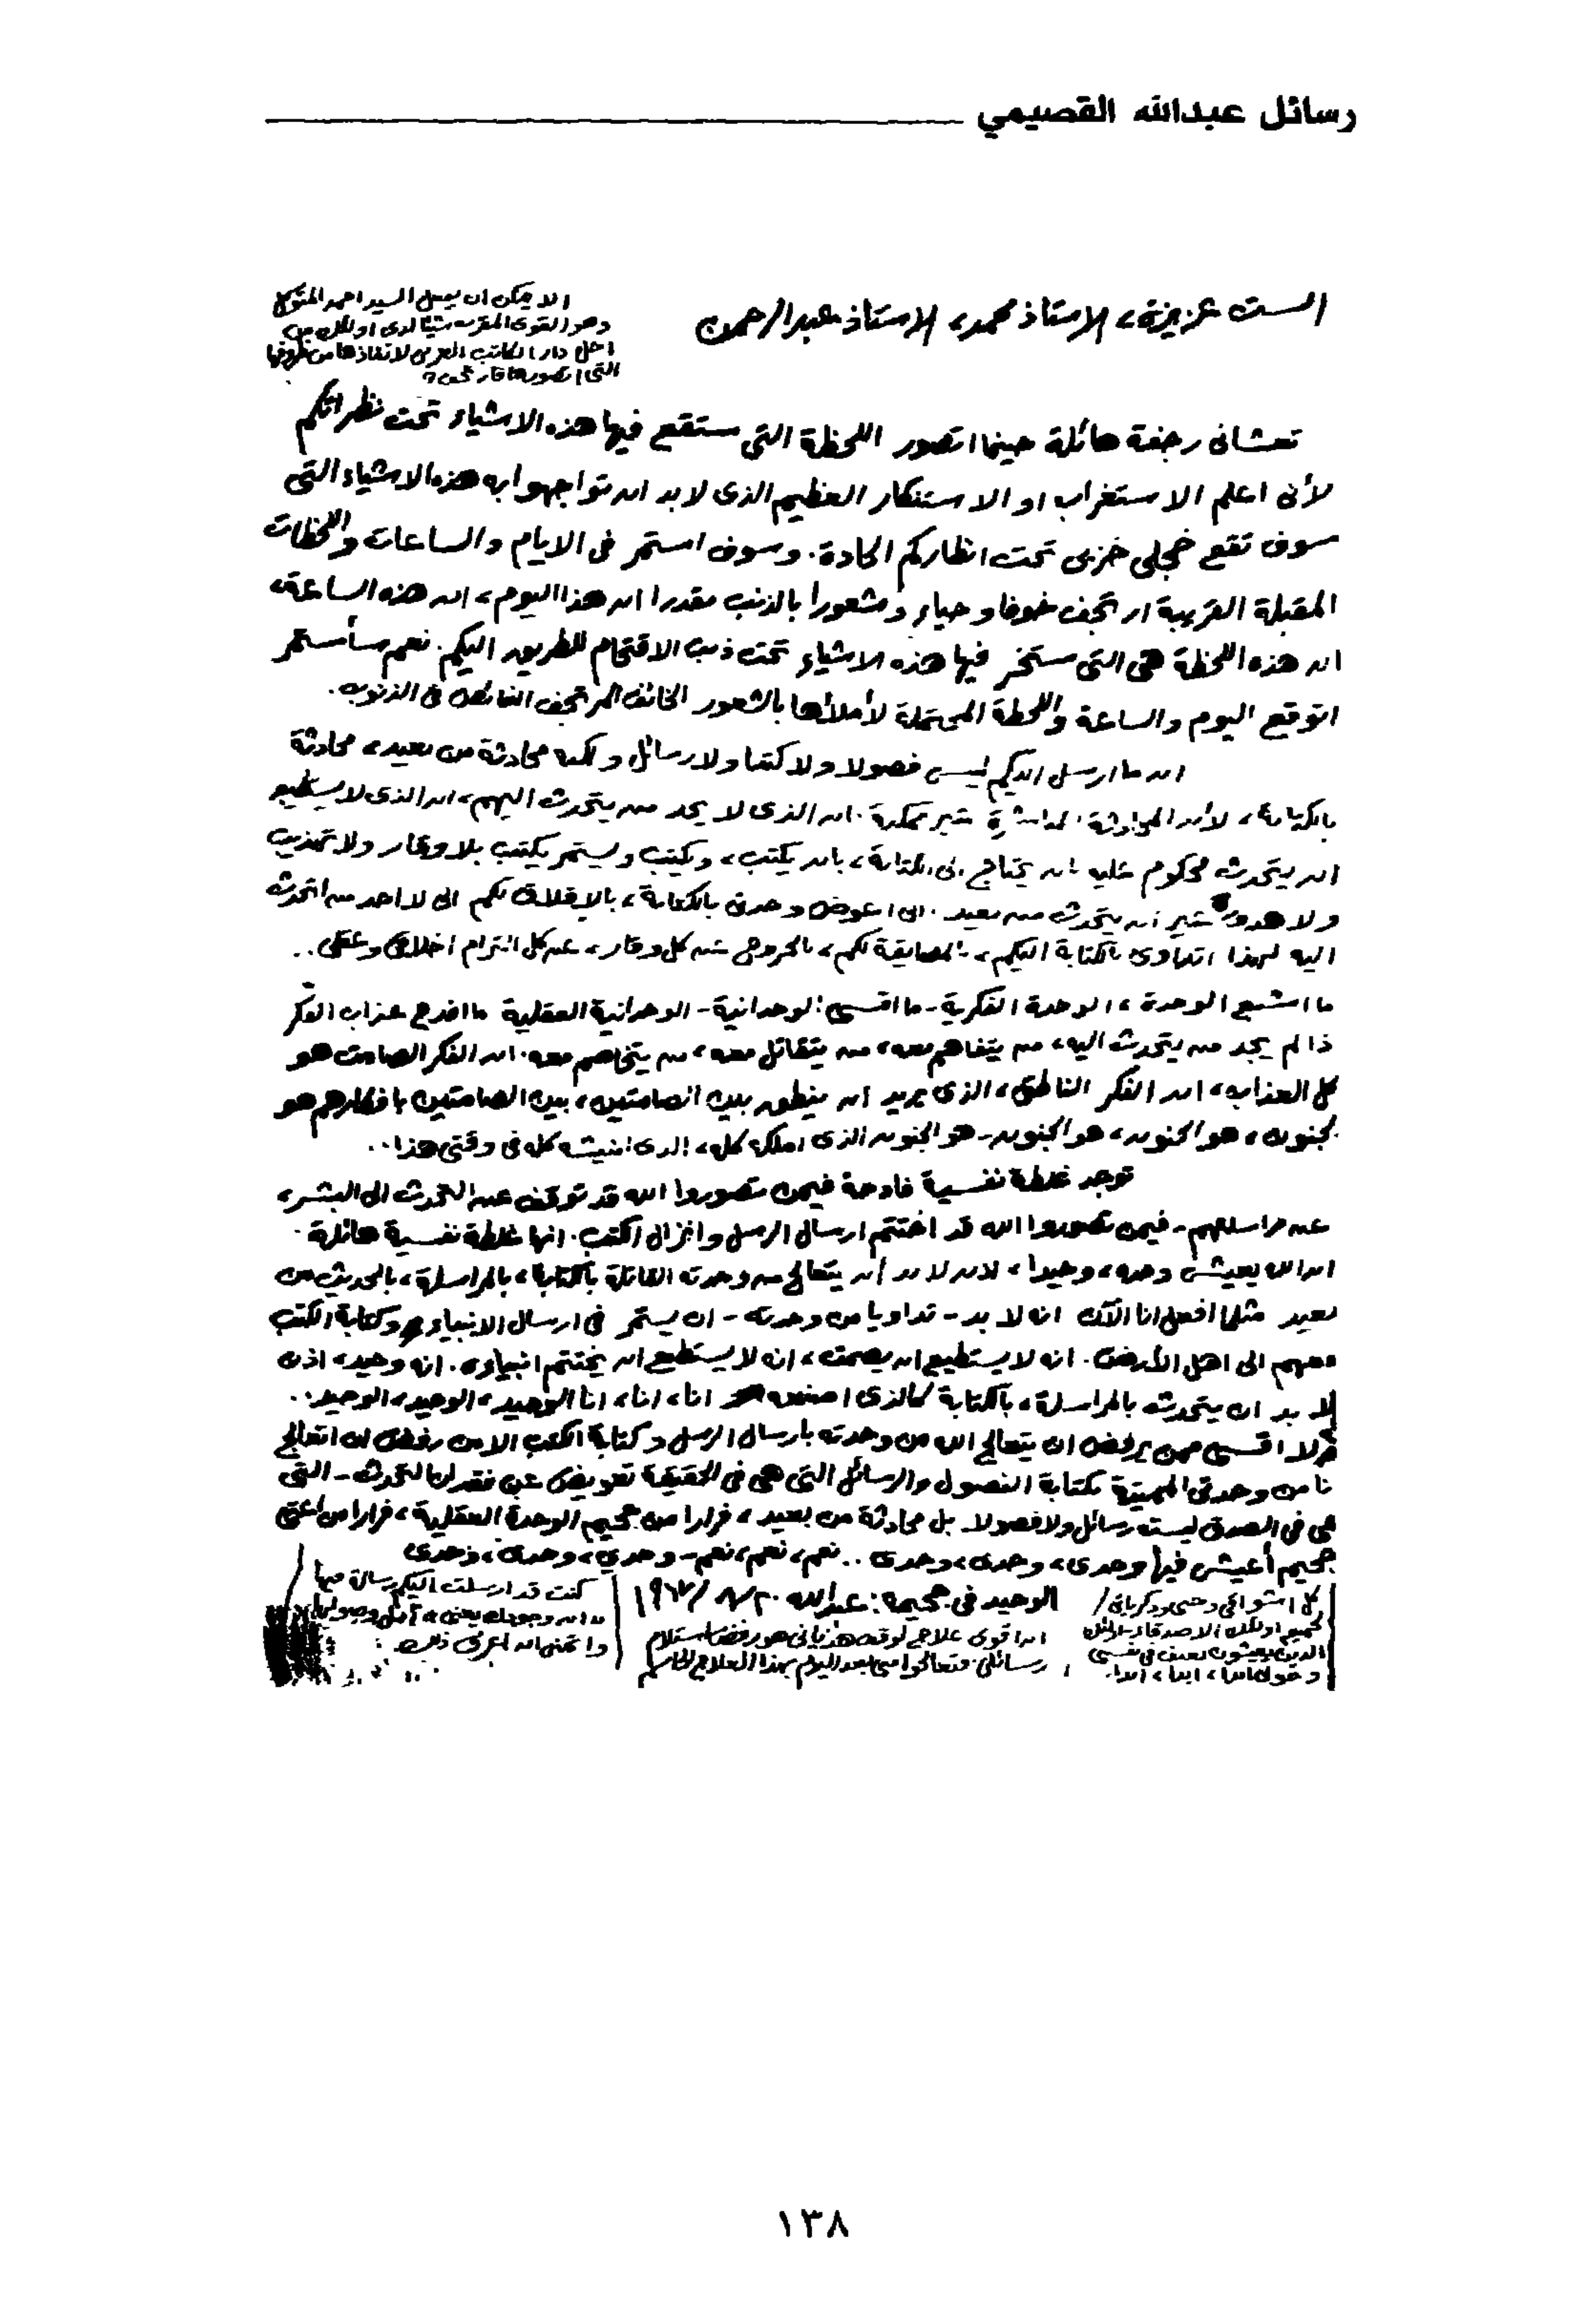 رسائل عبدالله القصيمي
الست عزيزة، الاستاذ محمد، الاستاذ عبدالرحمن
الا يمكن ان يعمل السيد احمد المتوكل
وهو القوى شيئا لدى اولئك من
اجل دار الكاتب العربى لانقاذها من ظروفها
التى اتصورها
تغشانى رجفة هائلة حينما اتصور اللحظة التى ستقع فيها هذه الاشياء تحت نظراتكم
لأنى اعلم الاستغراب او الاستنكار العظيم الذى لا بد ان تواجهوا به هذه الاشياء التى
سوف تقع خجلى خزى تحت انظاركم الحادة. وسوف استمر فى الايام والساعات واللحظات
المقبلة القريبة ارتجف خوفا وحياء وشعورا بالذنب مقدرا ان هذا اليوم، ان هذه الساعة،
ان هذه اللحظة هى التى ستخر فيها هذه الاشياء تحت ذنب الاقتحام للطريق اليكم. نعم سأستمر
اتوقع اليوم والساعة واللحظة المحتملة لأملأها بالشعور الخائف المرتجف الغائص فى الذنوب.
ان ما ارسل اليكم ليس فصولا ولا كتبا ولا رسائل ولكنه محادثة من بعيد، محادثة
بالكتابة، لأن المحادثة المباشرة غير ممكنة. ان الذى لا يجد من يتحدث اليهم، ان الذى لا يستطيع
ان يتحدث محكوم عليه بان يحتاج الى الكتابة، بان يكتب، ويكتب ويستمر يكتب بلا وقار ولا تهذيب
ولا هدف غير ان يتحدث من بعيد. انى اعوض وحدتى بالكتابة، بالاقلاق لكم انى لا احد من اتحدث
اليه لهذا اتداوى بالكتابة اليكم، بالمضايقة لكم، بالخروج عن كل وقار، عن كل التزام اخلاقى وعقلى..
ما ابشع الوحدة، الوحدة الفكرية - ما اقسى الوحدانية - الوحدانية العقلية ما افدح عذاب الفكر
ذا لم يجد من يتحدث اليه، من يتفاهم معه، من يتقاتل معه، من يتخاصم معه. ان الفكر الصامت هو
كل العذاب، ان الفكر الناطق، الذى يريد ان ينطق بين الصامتين، بين الصامتين بافكارهم هو
لجنون، هو الجنون، هو الجنون - هو الجنون الذى املكه كله، الذى اعيشه كله فى وقتى هذا..
توجد غلطة نفسية فادحة فيمن تصوروا الله قد توقف عن التحدث الى البشر،
عن مراسلتهم - فيمن تصوروا الله قد اختتم ارسال الرسل وانزال الكتب. انها غلطة نفسية هائلة.
ان الله يعيش وحده، وحيدا، لا بد ان يتعالج من وحدته القاتلة بالكتابة، بالمراسلة، بالحديث من
بعيد مثلما افعل انا الآن انه لا بد - تداويا من وحدته - ان يستمر فى ارسال الانبياء وكتابة الكتب
معهم الى اهل الأرض. انه لا يستطيع ان يصمت، انه لا يستطيع ان يختتم انبياءه. انه وحيد، اذن
لا بد ان يتحدث بالمراسلة، بالكتابة كالذى اصنعه انا، انا، انا الوحيد، الوحيد، الوحيد..
ولا اقسى ممن يرفض ان يتعالج الله من وحدته بارسال الرسل وكتابة الكتب الا من رفض ان اتعالج
نا من وحدتى المميتة بكتابة الفصول والرسائل التى هى فى الحقيقة تعويض عن فقدان التحدث - التى
هى فى الصدق ليست رسائل ولا فصولا بل محادثة من بعيد، فرارا من جحيم الوحدة العقلية، فرارا من اعتى
جحيم أعيش فيها وحدى، وحدى، وحدى.. نعم، نعم، نعم - وحدى، وحدى، وحدى
الوحيد فى جحيمه: عبدالله ٢٠/ ٨/ ١٩٦٧
كل اشواقى وحبى وذكرياتى
لجميع اولئك الاصدقاء
الذين يعيشون بعنف فى نفسى
ابدا، ابدا.
ان اقوى علاج لوقف هذيانى هو رفض استلام
رسائلى فتعالجوا منى بعد اليوم بهذا العلاج الحاسم
كنت قد ارسلت اليكم رسالة
آمل وصولها
واتمنى ان اعرف ذلك
١٣٨